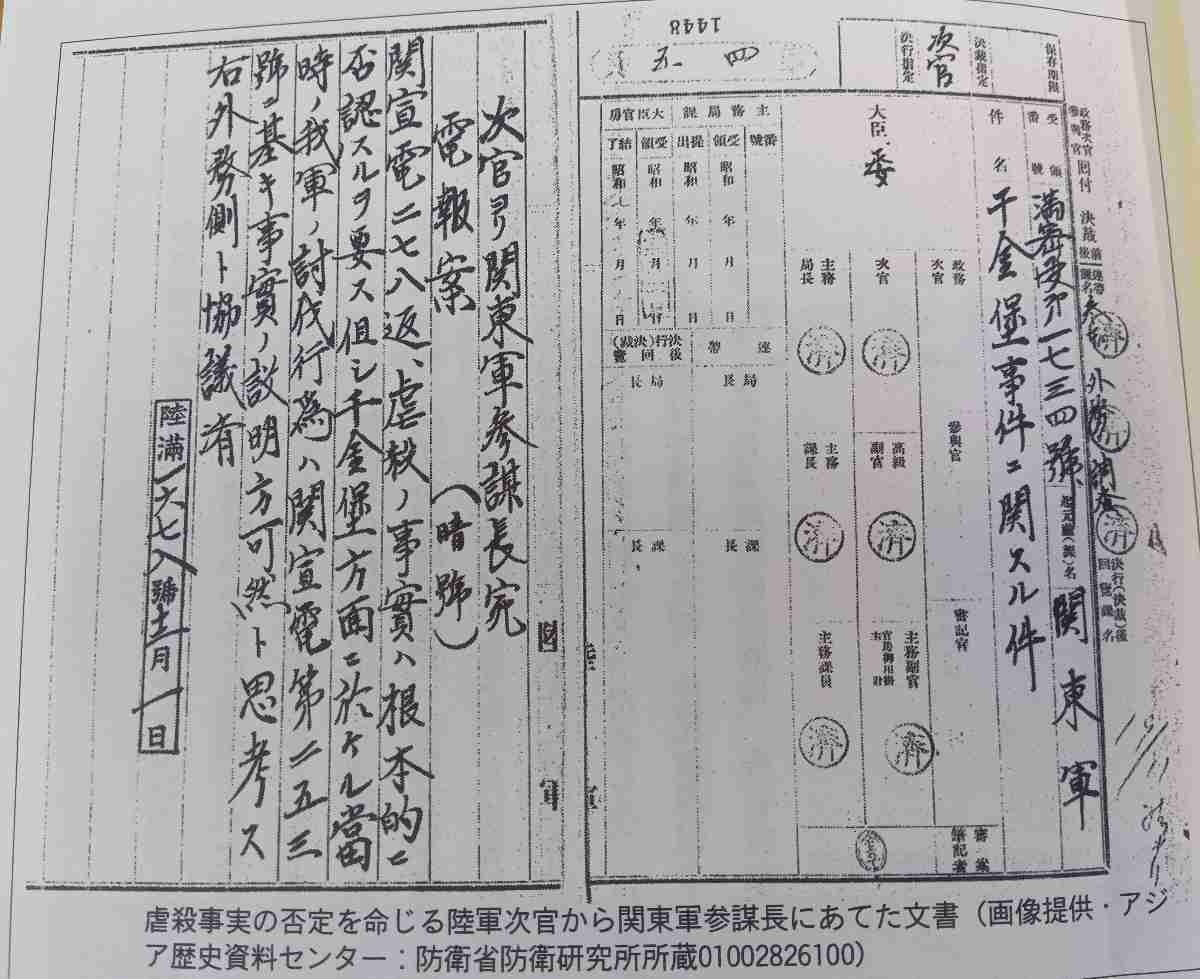 1448
五、四
保存期限
決裁指定
決行指定
次官
政務次官
參與官
回付
決裁
前後
連帶
課名
外務
調査
決行(決裁)後
回覽課名
濟
濟
濟
受領
番號
満密受第一七三四號
起元廳(課)名
関東軍
件名
千金堡事件ニ関スル件
大臣
委
政務
次官
次官
濟
主務
局長
濟
參與官
高級
副官
濟
主務
課長
濟
審記官
主務副官
濟
主務課員
濟
審案
筆記者
主務局課
番號
受領
昭和 年 月 日
提出
昭和 年 月 日
大臣官房
受領
昭和 年 月 日
結了
昭和 年 月 日
連帶
局長
課長
決行(決裁)後
回覽
局長
課長
次官ヨリ関東軍参謀長宛
電報案 (暗號)
関宣電二七八返、虐殺ノ事實ハ根本的ニ
否認スルヲ要ス但シ千金堡方面ニ於ケル當
時ノ我軍ノ討伐行為ハ関宣電第二五三
號ニ基キ事實ノ説明方可然ト思考ス
右外務側ト協議済
陸満一六七八號十二月一日
虐殺事実の否定を命じる陸軍次官から関東軍参謀長にあてた文書（画像提供・アジ
ア歴史資料センター：防衛省防衛研究所所蔵01002826100）